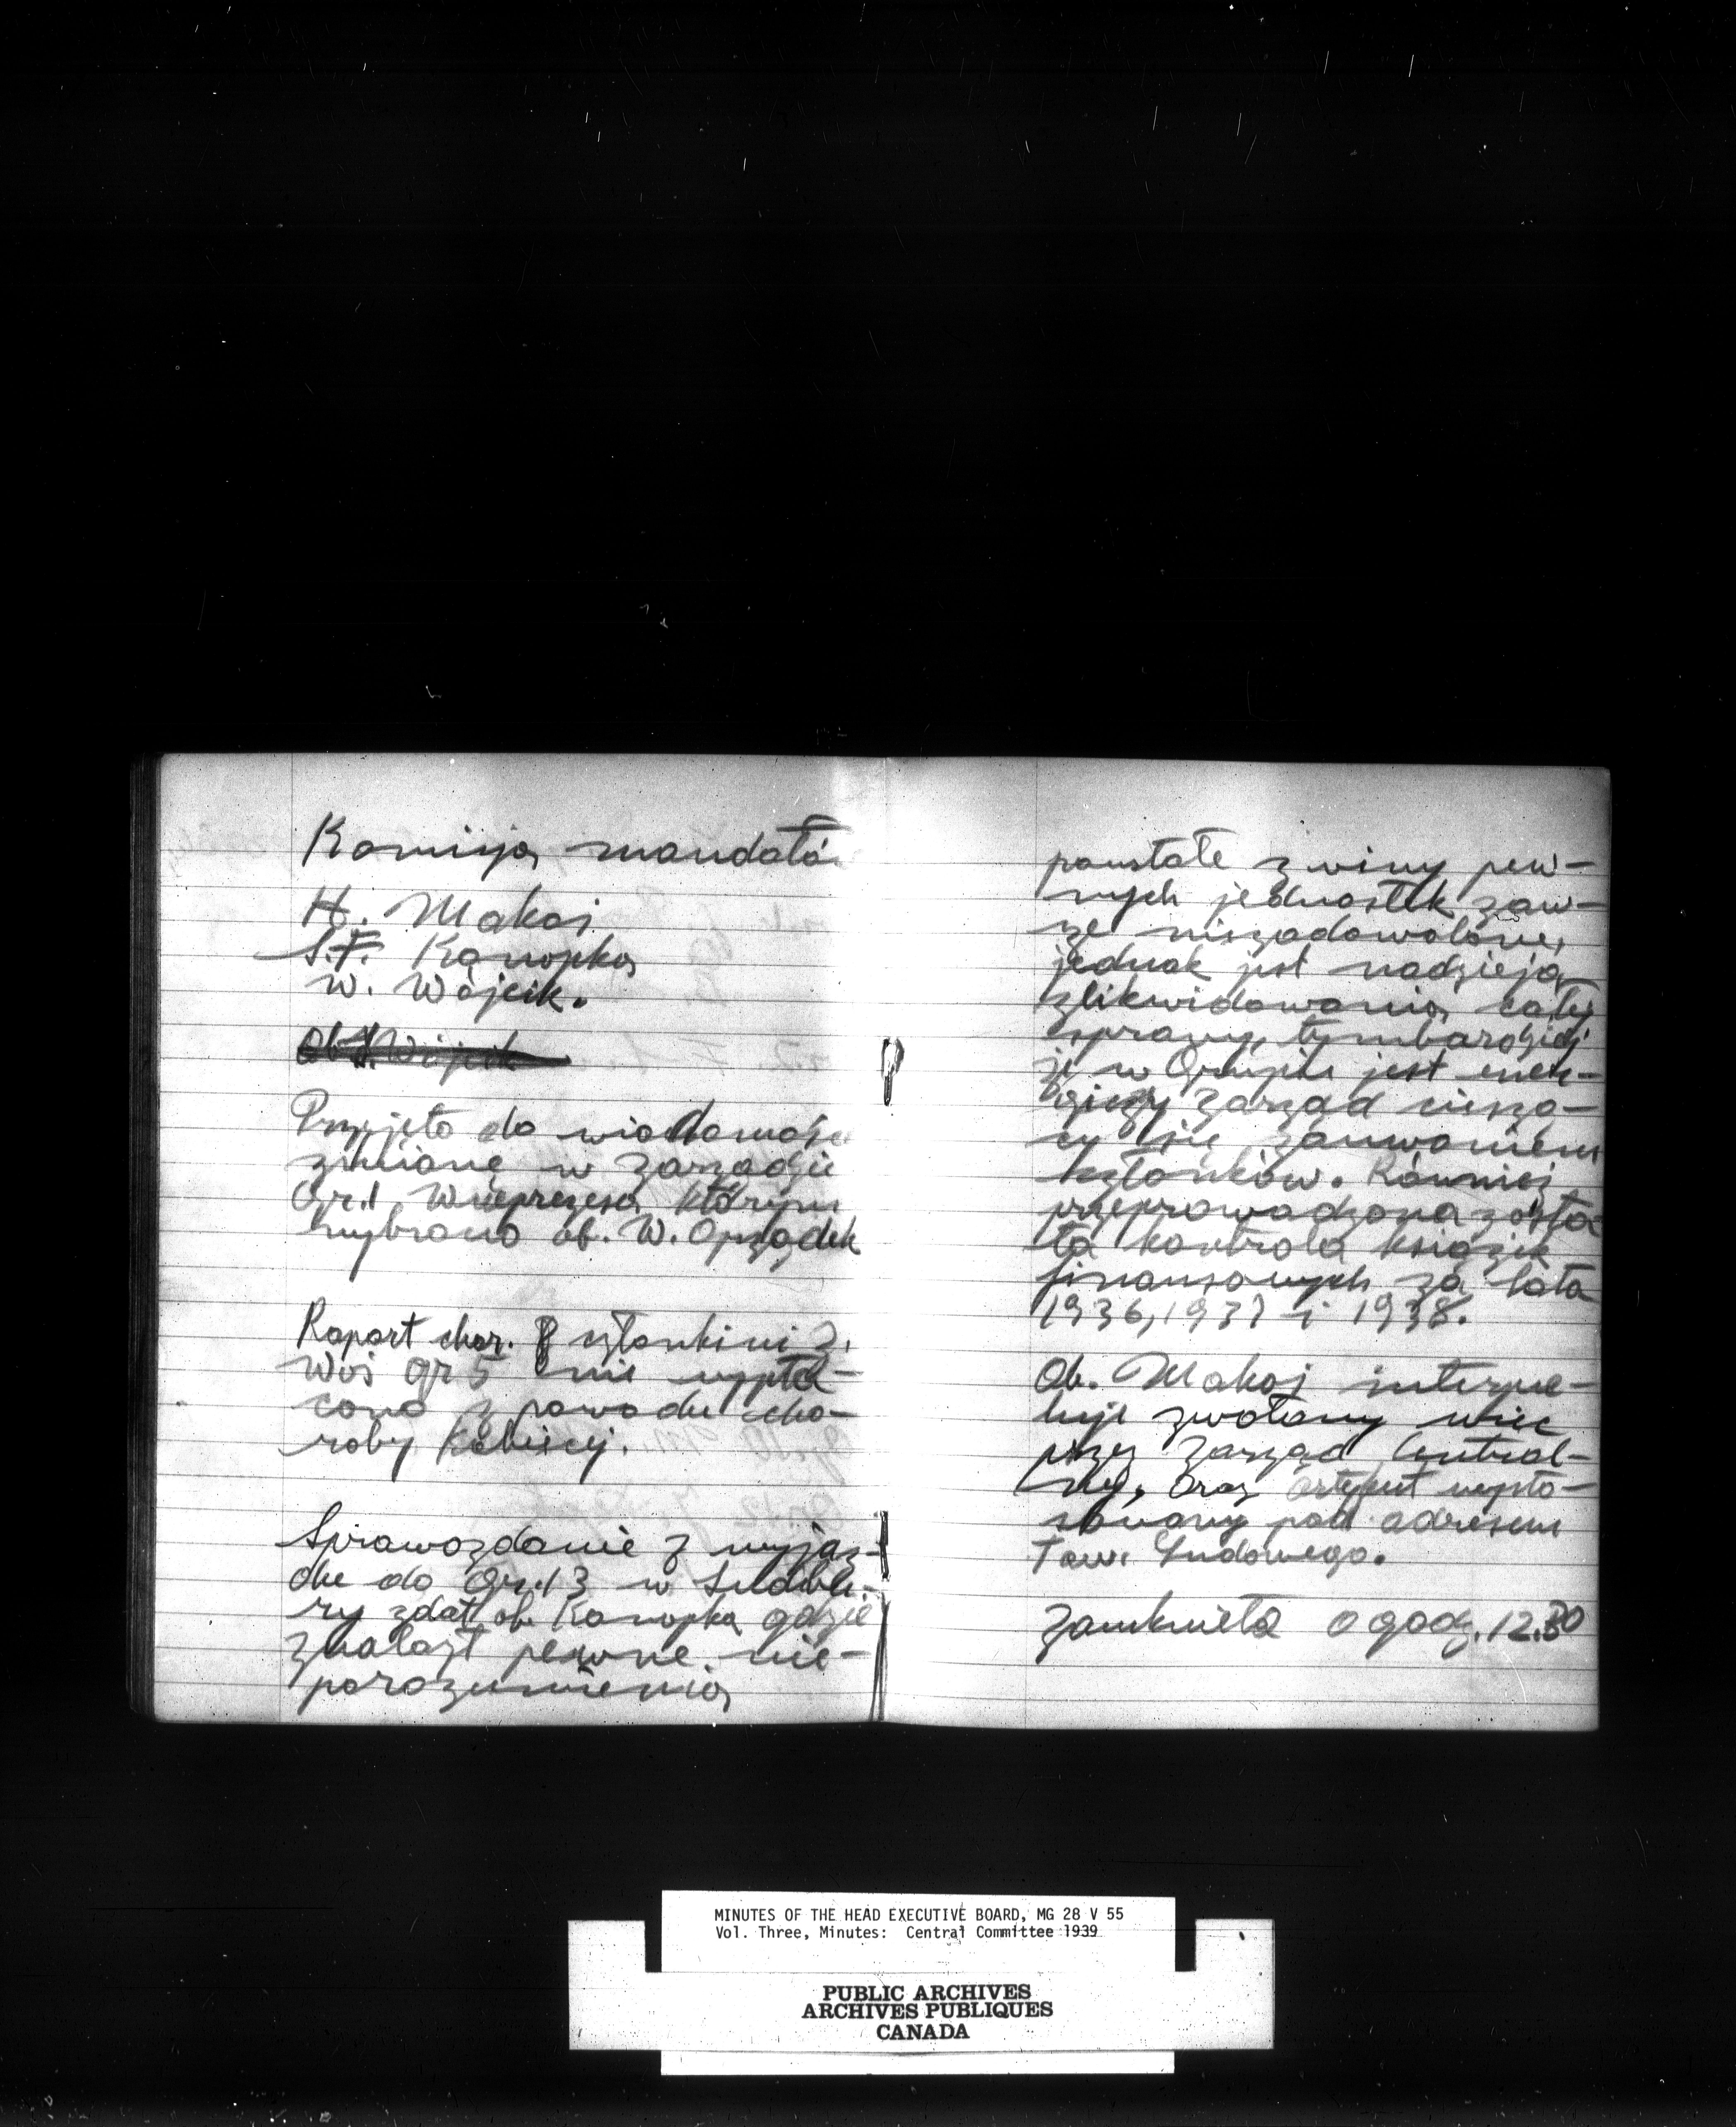 Komisja mandató
H. Makoj
S.F. Konopka
W. Wójcik.
Ob. Wójcik
Przyjęto do wiadomości
zmianę w Zarządzie
Gr.1 Wiceprezesa którym
wybrano ob. W. Oprządek
Raport chor. członkini Z.
Woś gr 5 nie wypła-
cono z powodu cho-
roby kobiecej.
Sprawozdanie z wyjaz-
du do Gr.13 w Sudbu-
ry zdał ob. Konopka gdzie
znalazł pewne nie-
porozumienia
powstałe z winy pew-
nych jednostek zaw-
sze niezadowolone,
jednak jest nadzieja
zlikwidowania całej
sprawy, tymbardziej
że w Grupie jest ener-
giczny Zarząd cieszą-
cy się zaufaniem
członków. Również
przeprowadzona zosta-
ła kontrola książek
finansowych za lata
1936, 1937 i 1938.
Ob. Makoj interpe-
luje zwołany wiec
przez Zarząd Central-
ny, oraz artykuł wysto-
sowany pod adresem
Tow. Ludowego.
Zamknięta o godz. 12.30
MINUTES OF THE HEAD EXECUTIVE BOARD, MG 28 V 55
Vol. Three, Minutes: Central Committee 1939
PUBLIC ARCHIVES
ARCHIVES PUBLIQUES
CANADA